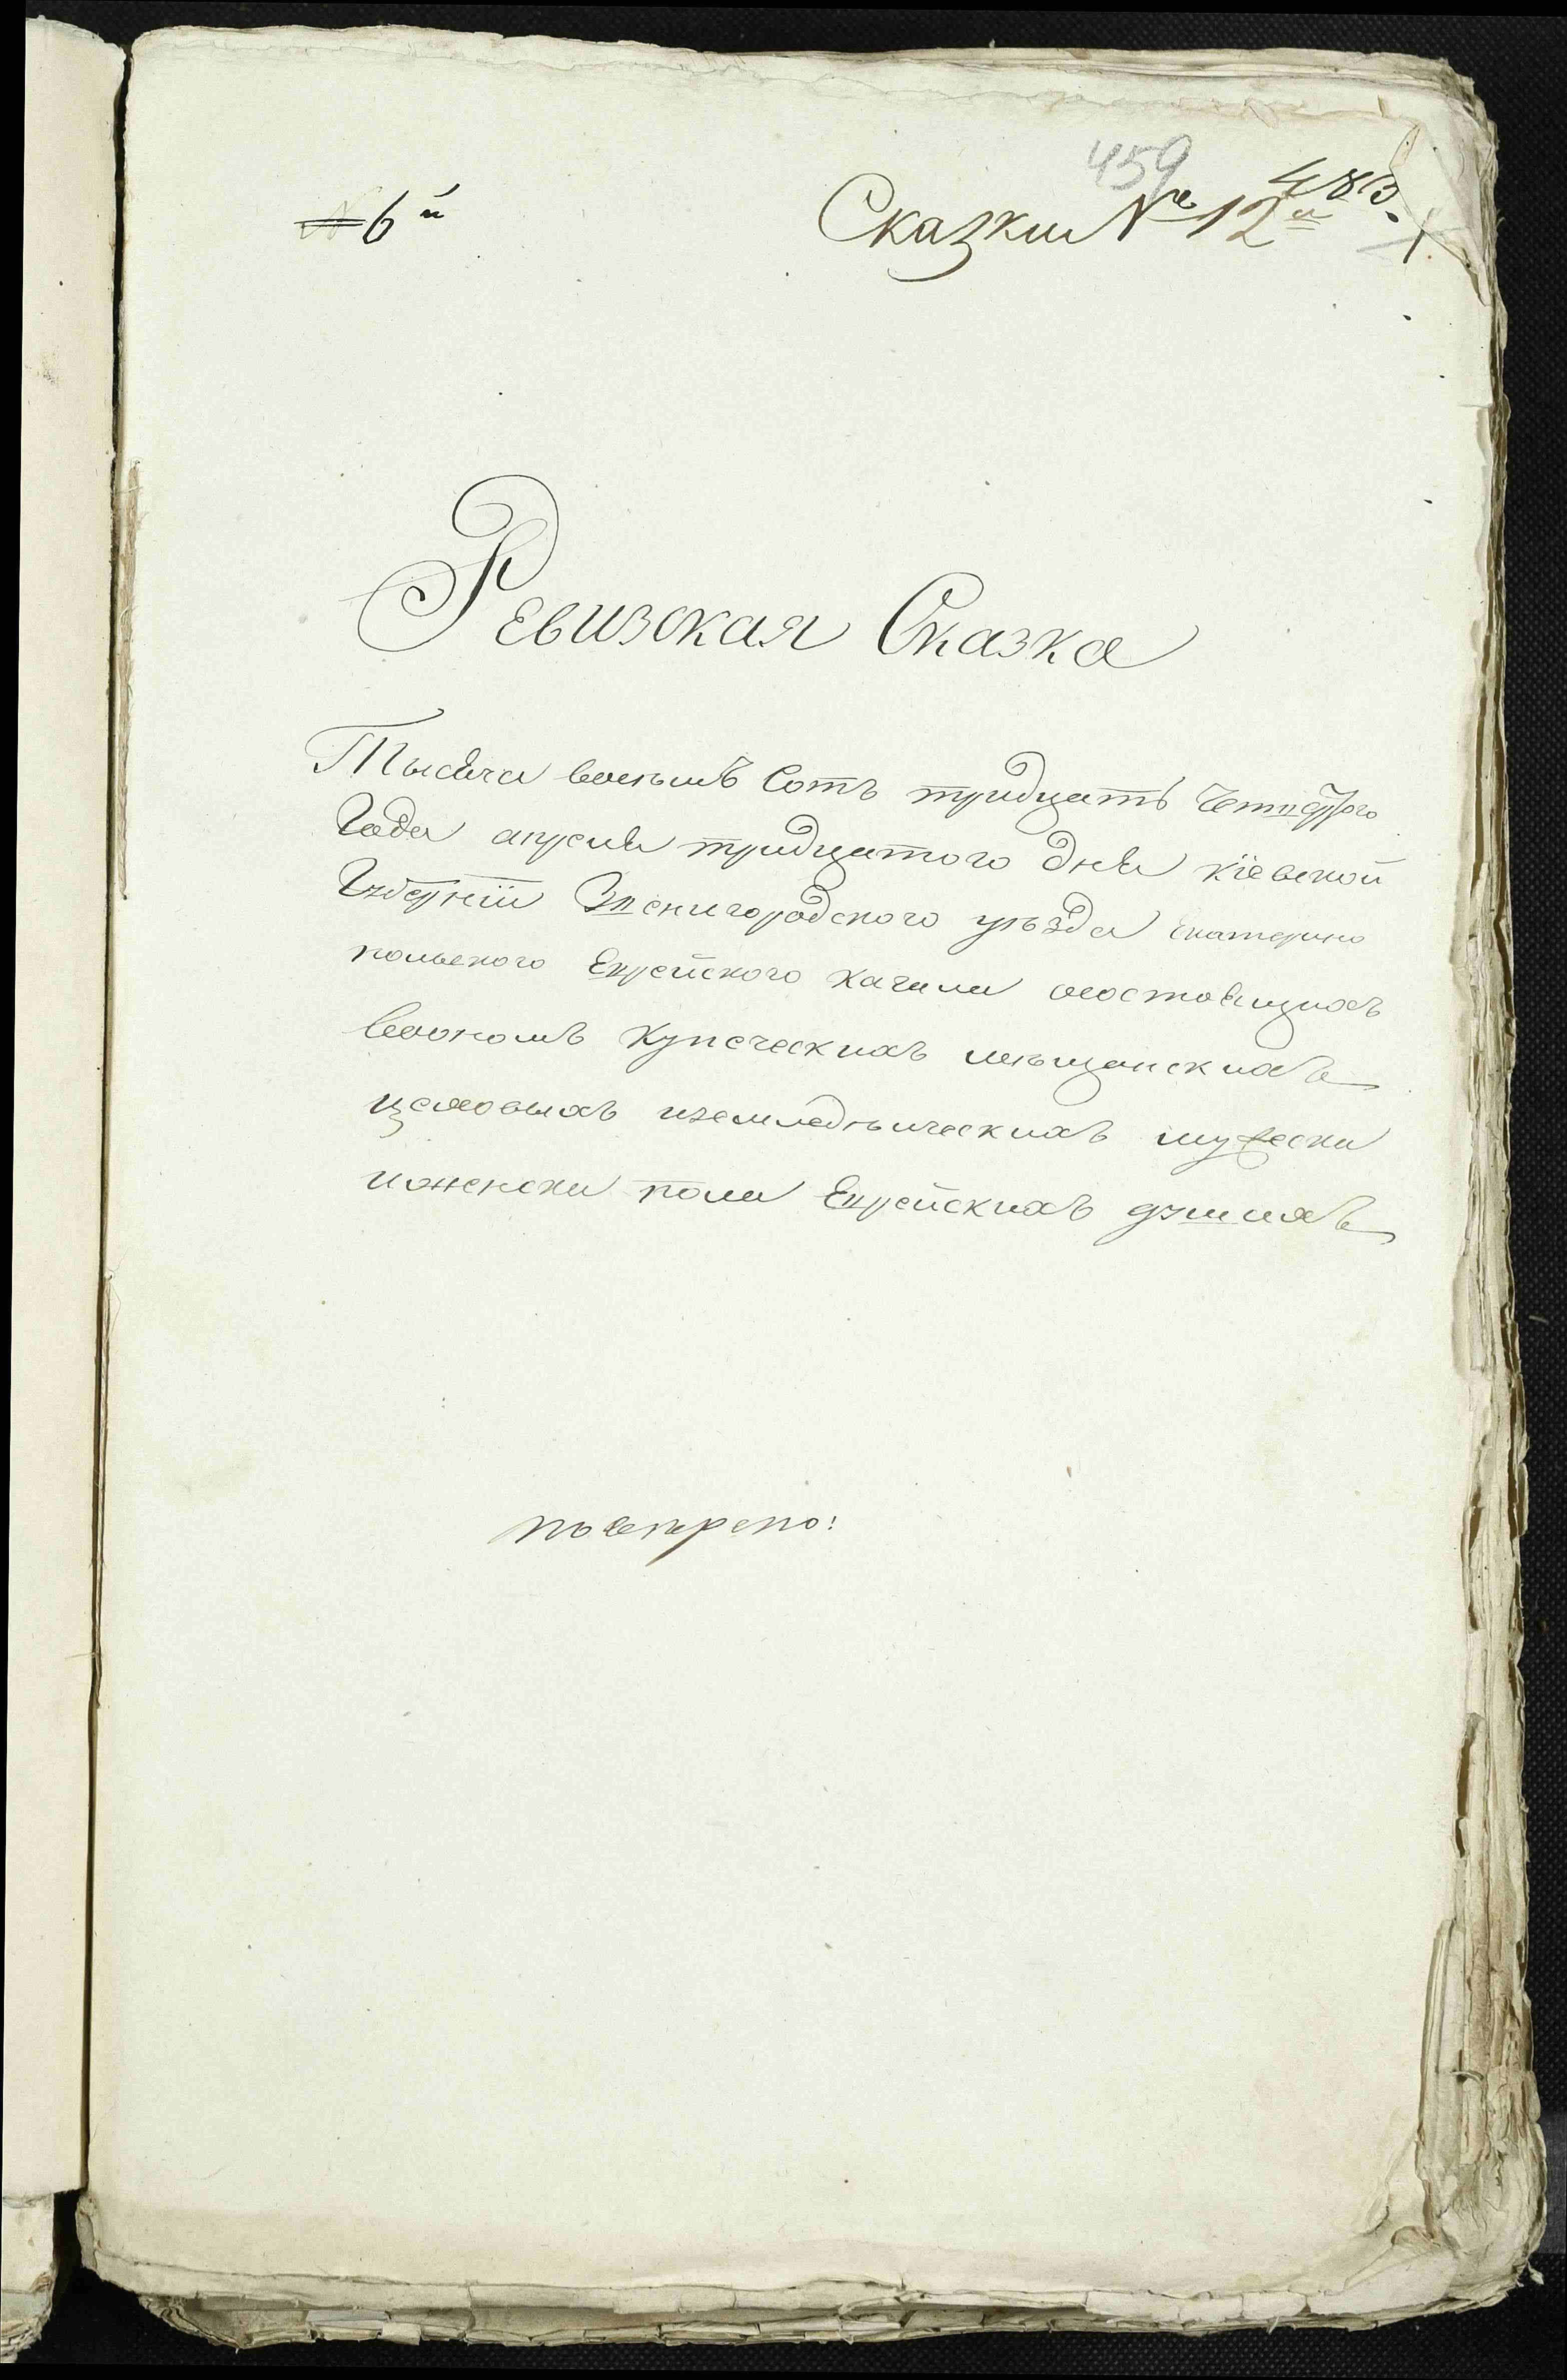 459
480.
№ 6й
Сказки № 12й
Ревизская Сказка
Тысяча восемь Сотъ тридцать Четвертого
Года апреля тридцатого Дня Кіевской
Губернїи Звенигородского уезда Екатерино
польского Еврейского Кагала осостоящихъ
Воономъ Купеческихъ мещанскихъ
цеховыхъ иземледельческихъ мужеска
иженска пола Еврейскихъ душахъ